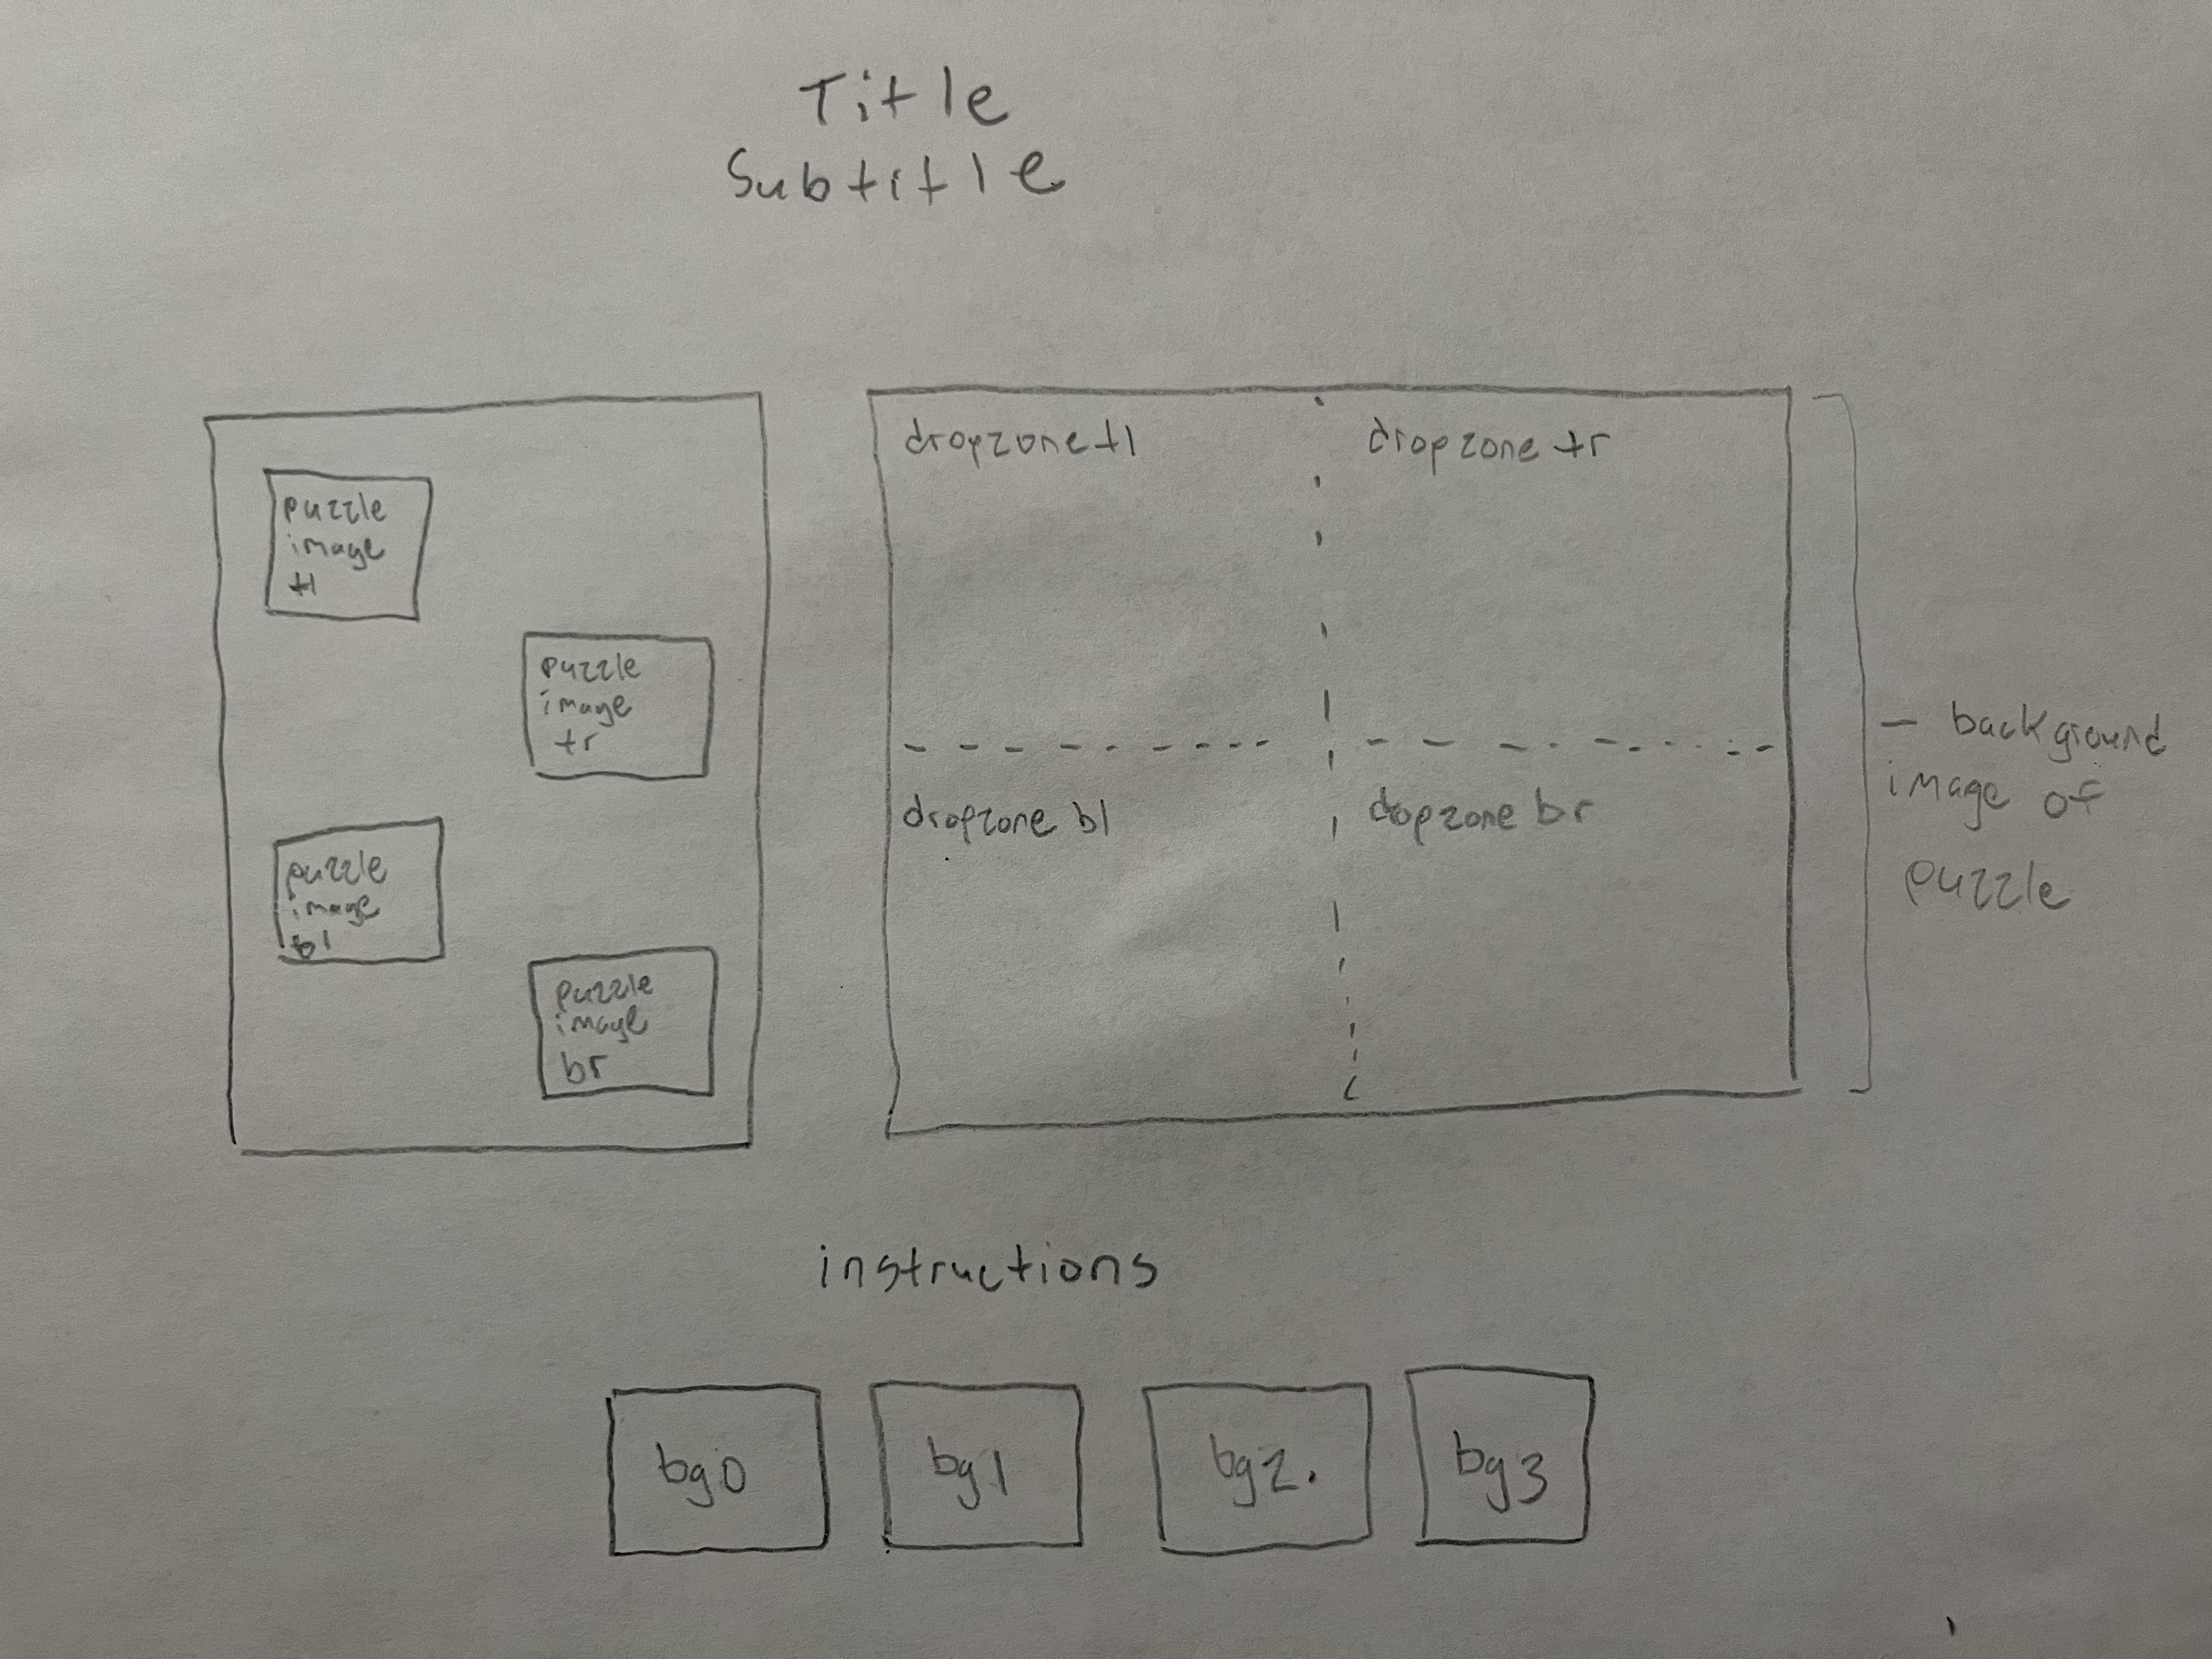 Title
Subtitle
puzzle
image
tl
puzzle
image
tr
puzzle
image
bl
puzzle
image
br
dropzone tl
dropzone tr
dropzone bl
dopzone br
- background
image of
puzzle
instructions
bg0
bg1
bg2.
bg3